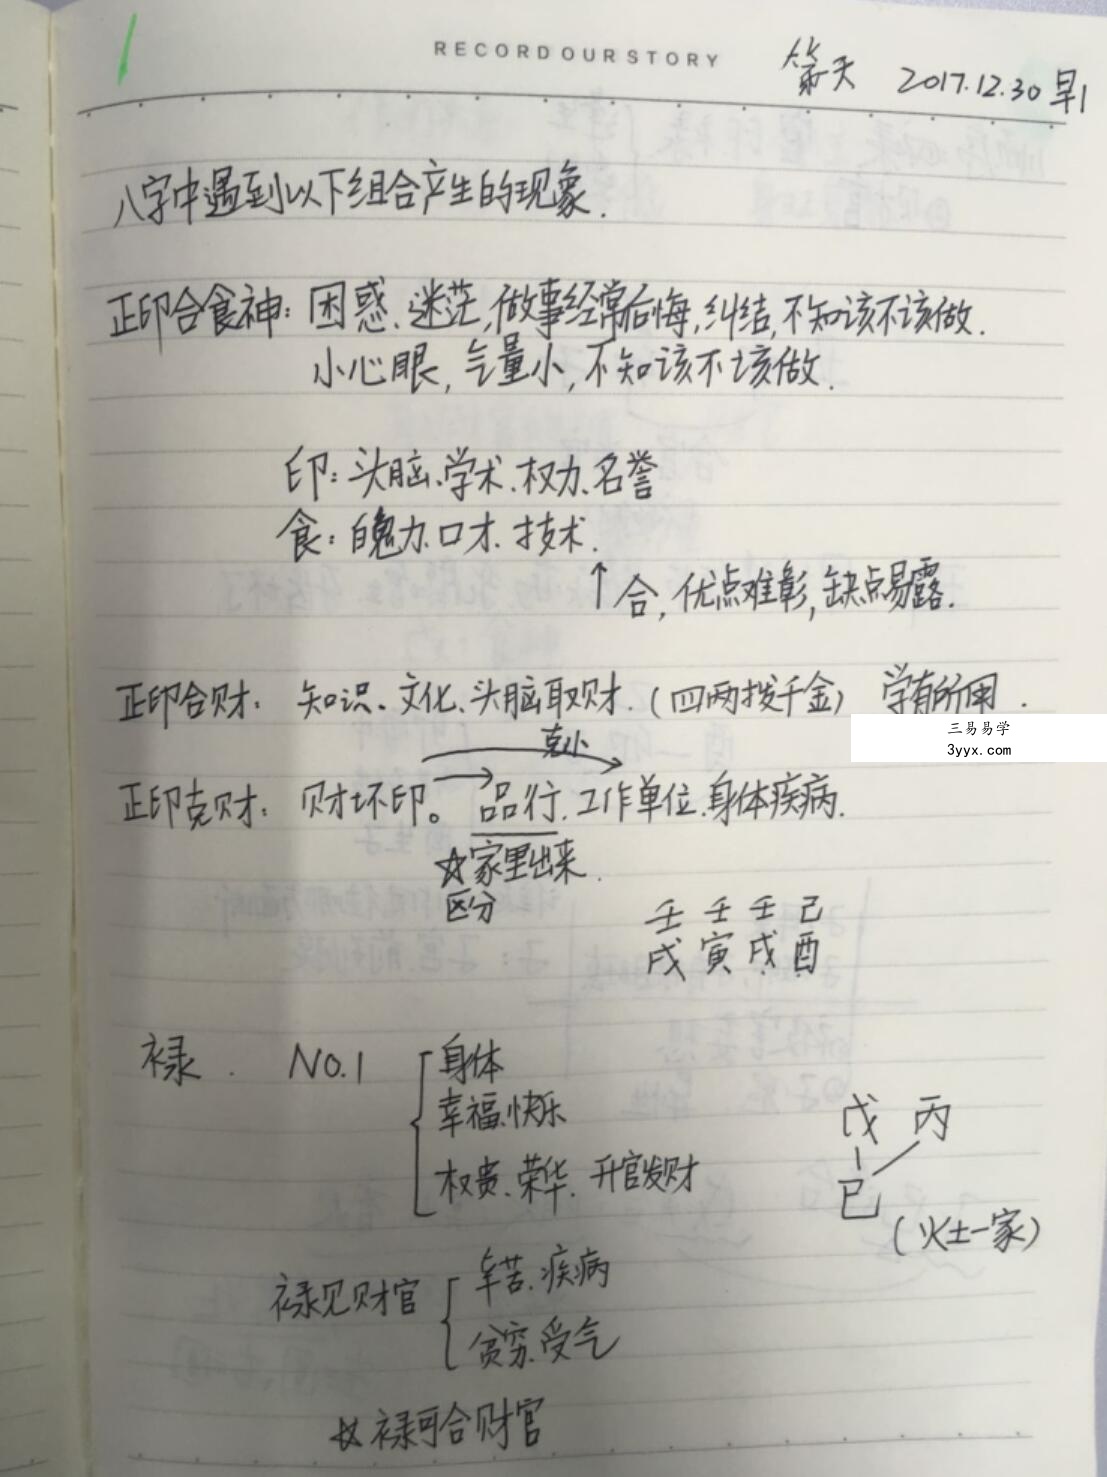 RECORD OUR STORY
第天 2017.12.30 早1
八字中遇到以下组合产生的现象.
正印合食神: 困惑、迷茫,做事经常后悔,纠结,不知该不该做.
小心眼,气量小,不知该不该做.
印: 头脑、学术、权力、名誉
食: 魄力、口才、技术.
↑合,优点难彰,缺点易露.
正印合财: 知识、文化、头脑取财.(四两拨千金) 学有所用.
三易易学
3yyx.com
克小
正印克财: 财坏印。品行、工作单位、身体疾病.
☆家里出来
区分
壬 壬 壬 己
戌 寅 戌 酉
禄. NO.1 身体
幸福、快乐
权贵、荣华、升官发财
戊 丙
巳
(火土一家)
禄见财官 辛苦、疾病
贫穷、受气
禄可合财官